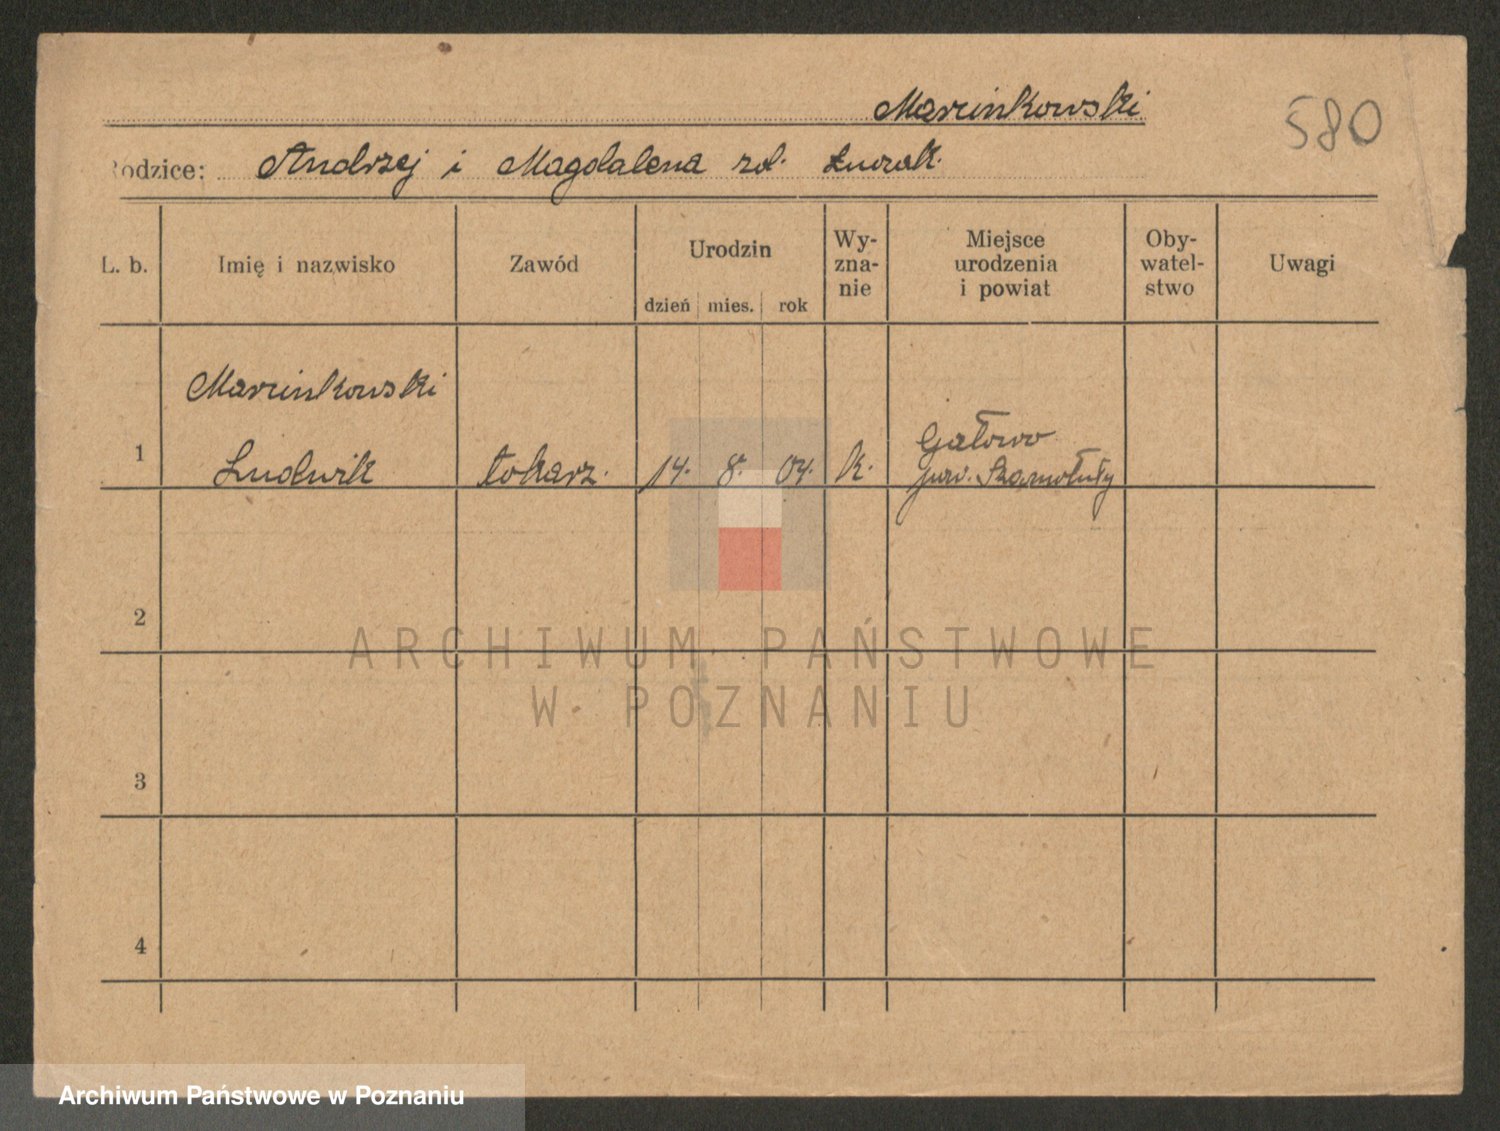 Marcinkowski
580
Rodzice: Andrzej i Magdalena zd. Łuczak.
L. b.
Imię i nazwisko
Zawód
Urodzin
dzień mies. rok
Wy-
zna-
nie
Miejsce
urodzenia
i powiat
Oby-
watel-
stwo
Uwagi
1
Marcinkowski
Ludwik
tokarz.
14. 8. 04.
k.
Gałowo
pow. Szamotuły
2
3
4
ARCHIWUM PAŃSTWOWE
W POZNANIU
Archiwum Państwowe w Poznaniu